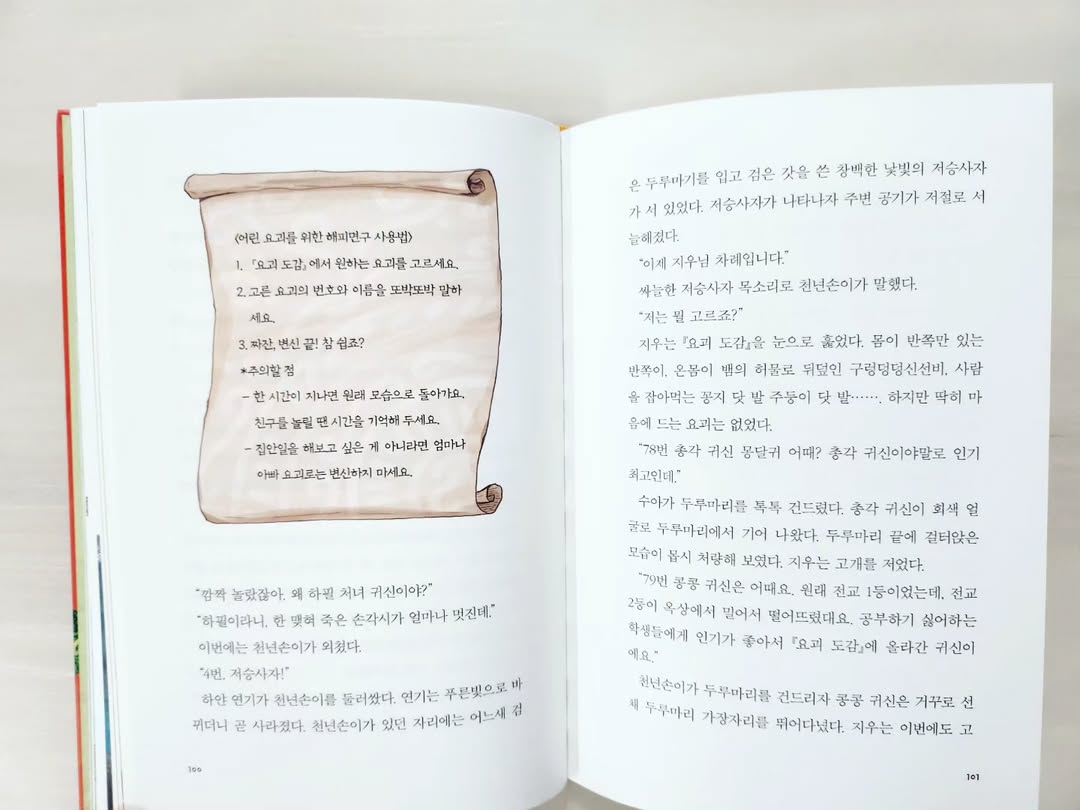 〈어린 요괴를 위한 해피면구 사용법〉
1. 『요괴 도감』에서 원하는 요괴를 고르세요.
2. 고른 요괴의 번호와 이름을 또박또박 말하
세요.
3. 짜잔, 변신 끝! 참 쉽죠?
*주의할 점
- 한 시간이 지나면 원래 모습으로 돌아가요.
친구를 놀릴 땐 시간을 기억해 두세요.
- 집안일을 해보고 싶은 게 아니라면 엄마나
아빠 요괴로는 변신하지 마세요.
“깜짝 놀랐잖아. 왜 하필 처녀 귀신이야?”
“하필이라니, 한 맺혀 죽은 손각시가 얼마나 멋진데.”
이번에는 천년손이가 외쳤다.
“4번, 저승사자!”
하얀 연기가 천년손이를 둘러쌌다. 연기는 푸른빛으로 바
뀌더니 곧 사라졌다. 천년손이가 있던 자리에는 어느새 검
100
은 두루마기를 입고 검은 갓을 쓴 창백한 낯빛의 저승사자
가 서 있었다. 저승사자가 나타나자 주변 공기가 저절로 서
늘해졌다.
“이제 지우님 차례입니다.”
싸늘한 저승사자 목소리로 천년손이가 말했다.
“저는 뭘 고르죠?”
지우는 『요괴 도감』을 눈으로 훑었다. 몸이 반쪽만 있는
반쪽이, 온몸이 뱀의 허물로 뒤덮인 구렁덩덩신선비, 사람
을 잡아먹는 꽁지 닷 발 주둥이 닷 발……. 하지만 딱히 마
음에 드는 요괴는 없었다.
“78번 총각 귀신 몽달귀 어때? 총각 귀신이야말로 인기
최고인데.”
수아가 두루마리를 톡톡 건드렸다. 총각 귀신이 회색 얼
굴로 두루마리에서 기어 나왔다. 두루마리 끝에 걸터앉은
모습이 몹시 처량해 보였다. 지우는 고개를 저었다.
“79번 콩콩 귀신은 어때요. 원래 전교 1등이었는데, 전교
2등이 옥상에서 밀어서 떨어뜨렸대요. 공부하기 싫어하는
학생들에게 인기가 좋아서 『요괴 도감』에 올라간 귀신이
에요.”
천년손이가 두루마리를 건드리자 콩콩 귀신은 거꾸로 선
채 두루마리 가장자리를 뛰어다녔다. 지우는 이번에도 고
101